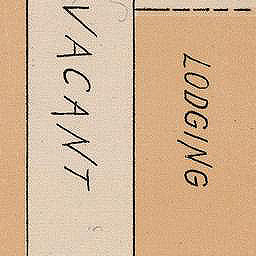 VACANT
LODGING